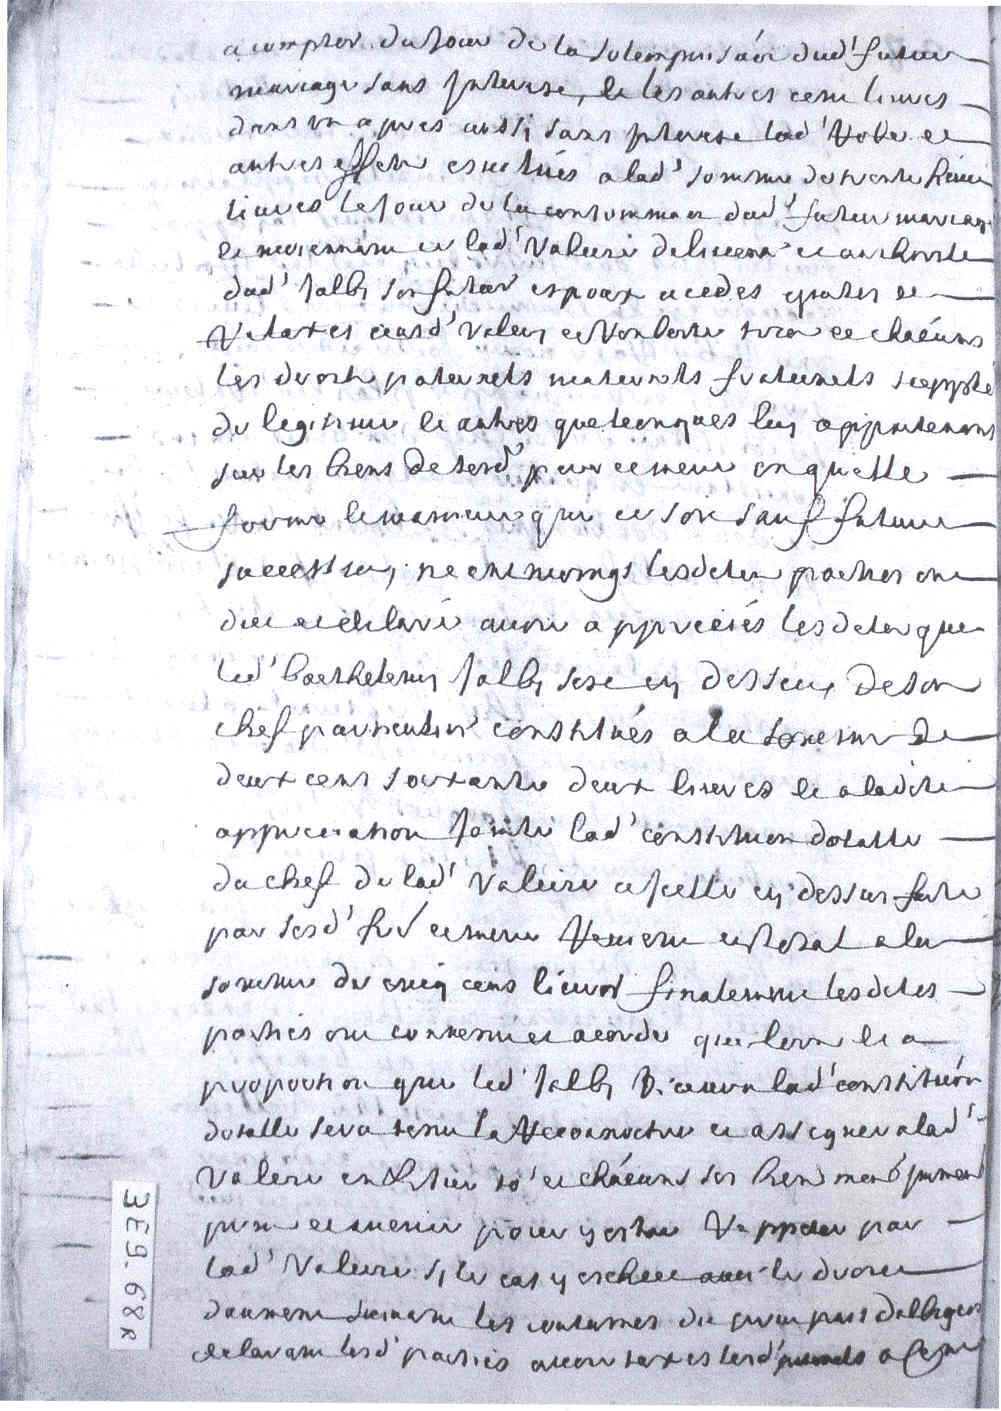 a compter du jour de la solempnisãon dud' futur
mariage sans Interest, et les autres cent livres
dans un a pres aussi sans Interest lad' Robe et
autres effetz estimés a lad' somme de trente
livres le jour de la consommaon dud' futur mariage
et moiennant ce lad' Valerie de licence et authorite
dud' Jalby son futur espoux a cedes quites et
Relaxes ausd' Valery et tous et chacuns
les droits paternels maternels fraternels suppplé
de legitime et autres quelconques luy appartenans
sur les biens de sesd' pere et mere en quelle
forme et maniere que ce soit sauf future
succession, neantmoings lesdites parties ont
dit et declaré avoir appreciés lesdites que
led' Barthelemy Jalby sest cy dessus de son
chef particulier constitués a la somme de
deux cens soixante deux livres et a ladite
appreciation jointe lad' constitution dotalle
du chef de lad' Valerie et icelle cy dessus faite
par sesd' frere et mere Revient en total a la
somme de cinq cens livres finalement lesdites
parties ont convenu et acordé que lors et a
proportion que led' Jalby Recevra lad' constitution
dotalle sera tenu la Reconnoitre et assigner a lad'
Valerie sur tous et chacuns ses biens meubles
pnts et avenir pour y estre Reppetée par
lad' Valerie sy le cas y eschoit avec le droit
daugment suivant les coutumes du present pais dalbigeois
declarant lesd' parties
3E69.688